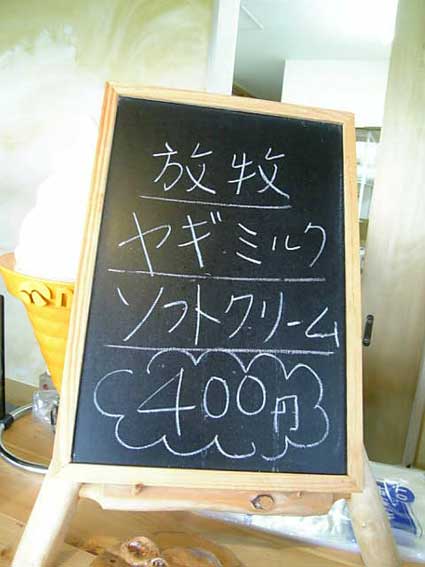 放牧
ヤギミルク
ソフトクリーム
400円